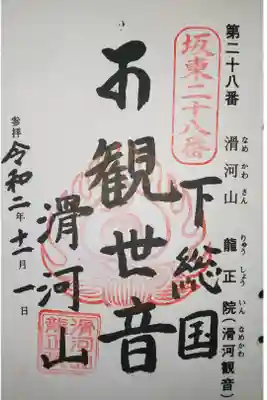 第二十八番 滑河山 龍正院(滑河観音)
なめ かわ さん りゅう しょう いん なめかわ
坂東二十八番
下総国
観世音
滑河山
滑河山
龍正院
参拝 令和二年十二月一日